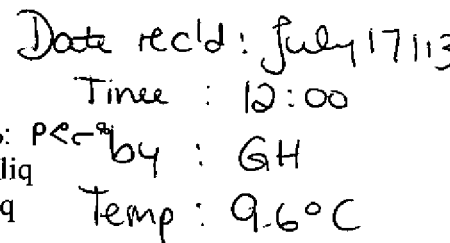 Date rec'd: July 17/13
Time : 12:00
by : GH
liq
Temp : 9.6°C
q